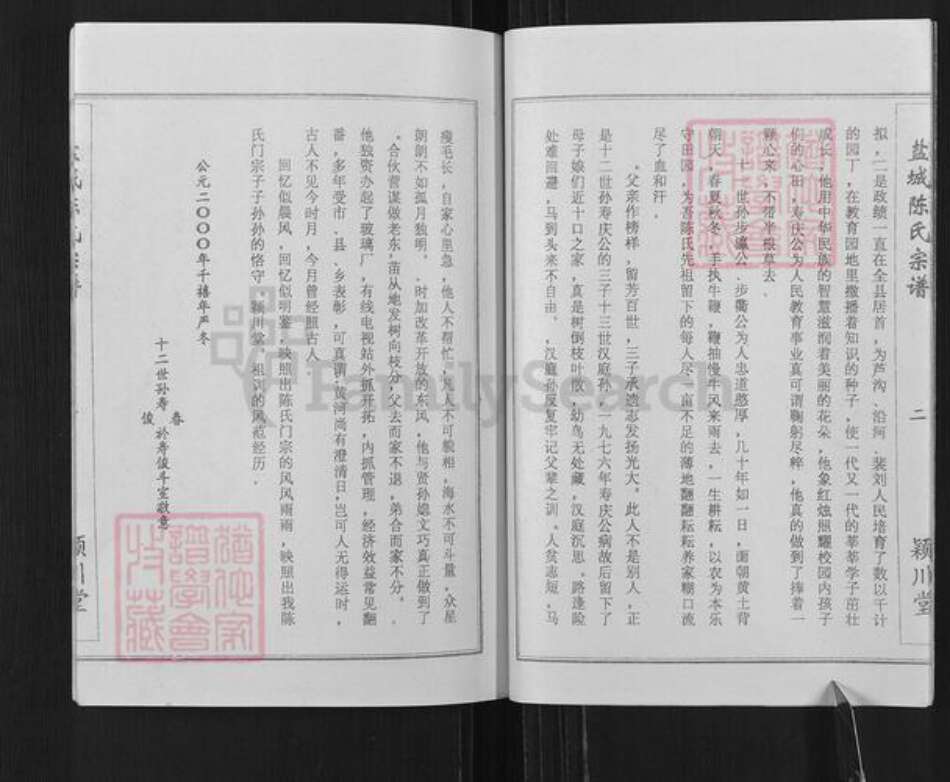 盐城陈氏宗谱
二
颖川堂
拟,二是政绩一直在全县居首,为芦沟、沿河、裴刘人民培育了数以千计
的园丁,在教育园地里撒播着知识的种子,使一代又一代的莘莘学子茁壮
成长,他用中华民族的智慧滋润着美丽的花朵,他象红烛照耀校园内孩子
们的心田,寿庆公为人民教育事业真可谓鞠躬尽粹,他真的做到了捧着一
颗心来,不带半根草去.
十一世孙步瀛公、步衢公为人忠道憨厚,几十年如一日,面朝黄土背
朝天,春夏秋冬,手执牛鞭,鞭抽慢牛风来雨去,一生耕耘,以农为本乐
守田园,为吾陈氏先祖留下的每人尽一亩不足的薄地翻翻耘耘养家糊口流
尽了血和汗.
父亲作榜样,留芳百世,三子承遗志发扬光大。此人不是别人,正
是十二世孙寿庆公的三子十三世汉庭孙,一九七六年寿庆公病故后留下了
母子娘们近十口之家,真是树倒枝叶散,幼鸟无处藏,汉庭沉思。路逢险
处难回避,马到头来不自由。汉庭孙反复牢记父辈之训。人贫志短,马
瘦毛长,自家心里急,他人不帮忙,凡人不可貌相,海水不可斗量,众星
朗朗不如孤月独明。时加改革开放的东风,他与贤孙媳文巧真正做到了
合伙营谋做老东,苗从地发树向枝分,父去而家不退,弟合而家不分。
他独资办起了玻璃厂,有线电视站外抓开拓,内抓管理,经济效益常见翻
番,多年受市、县、乡表彰,可真谓:黄河尚有澄清日,岂可人无得运时,
古人不见今时月,今月曾经照古人.
回忆似晨风,回忆似明鉴,映照出陈氏门宗的风风雨雨,映照出我陈
氏门宗子子孙孙的恪守"颖川堂"祖训的风范经历.
公元二〇〇〇年千禧年严冬
十二世孙寿 春 俊 於寿俊斗室敬意
FamilySearch